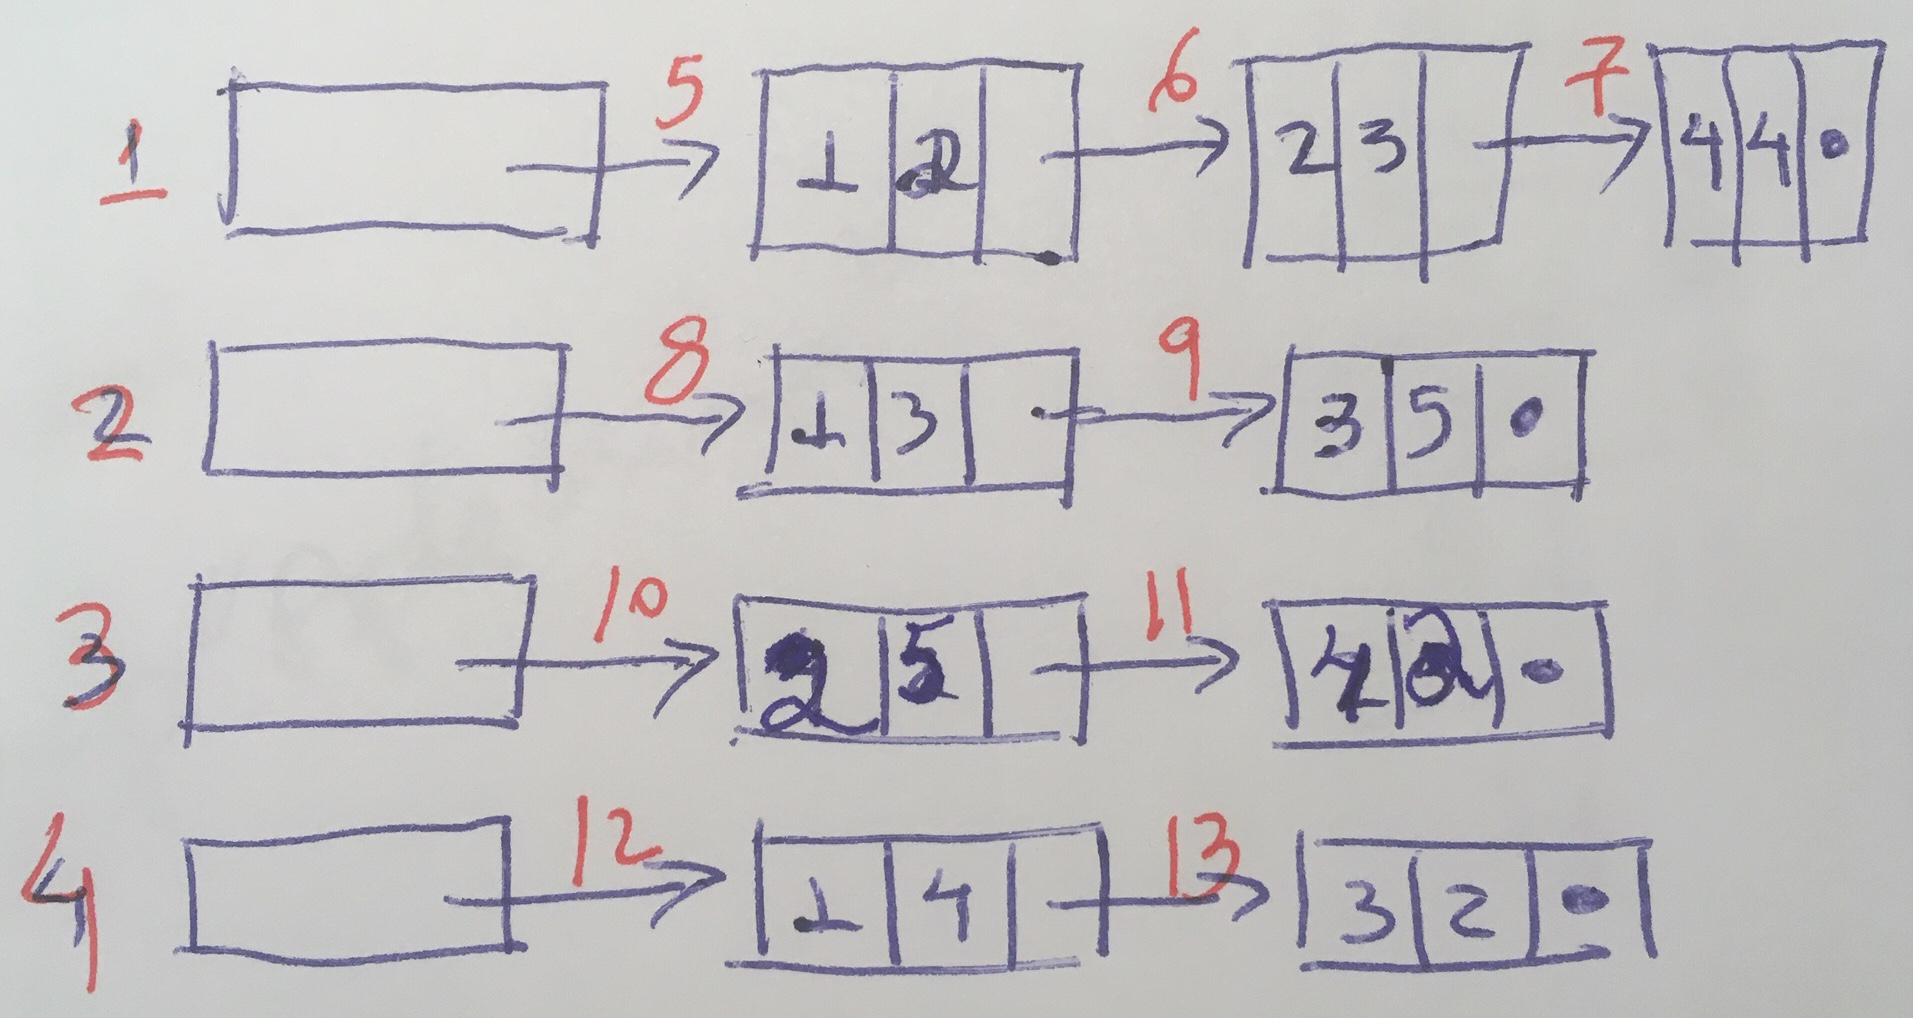 1 5 1 2 6 2 3 7 4 4
2 8 1 3 9 3 5
3 10 2 5 11 4 2
4 12 1 4 13 3 2